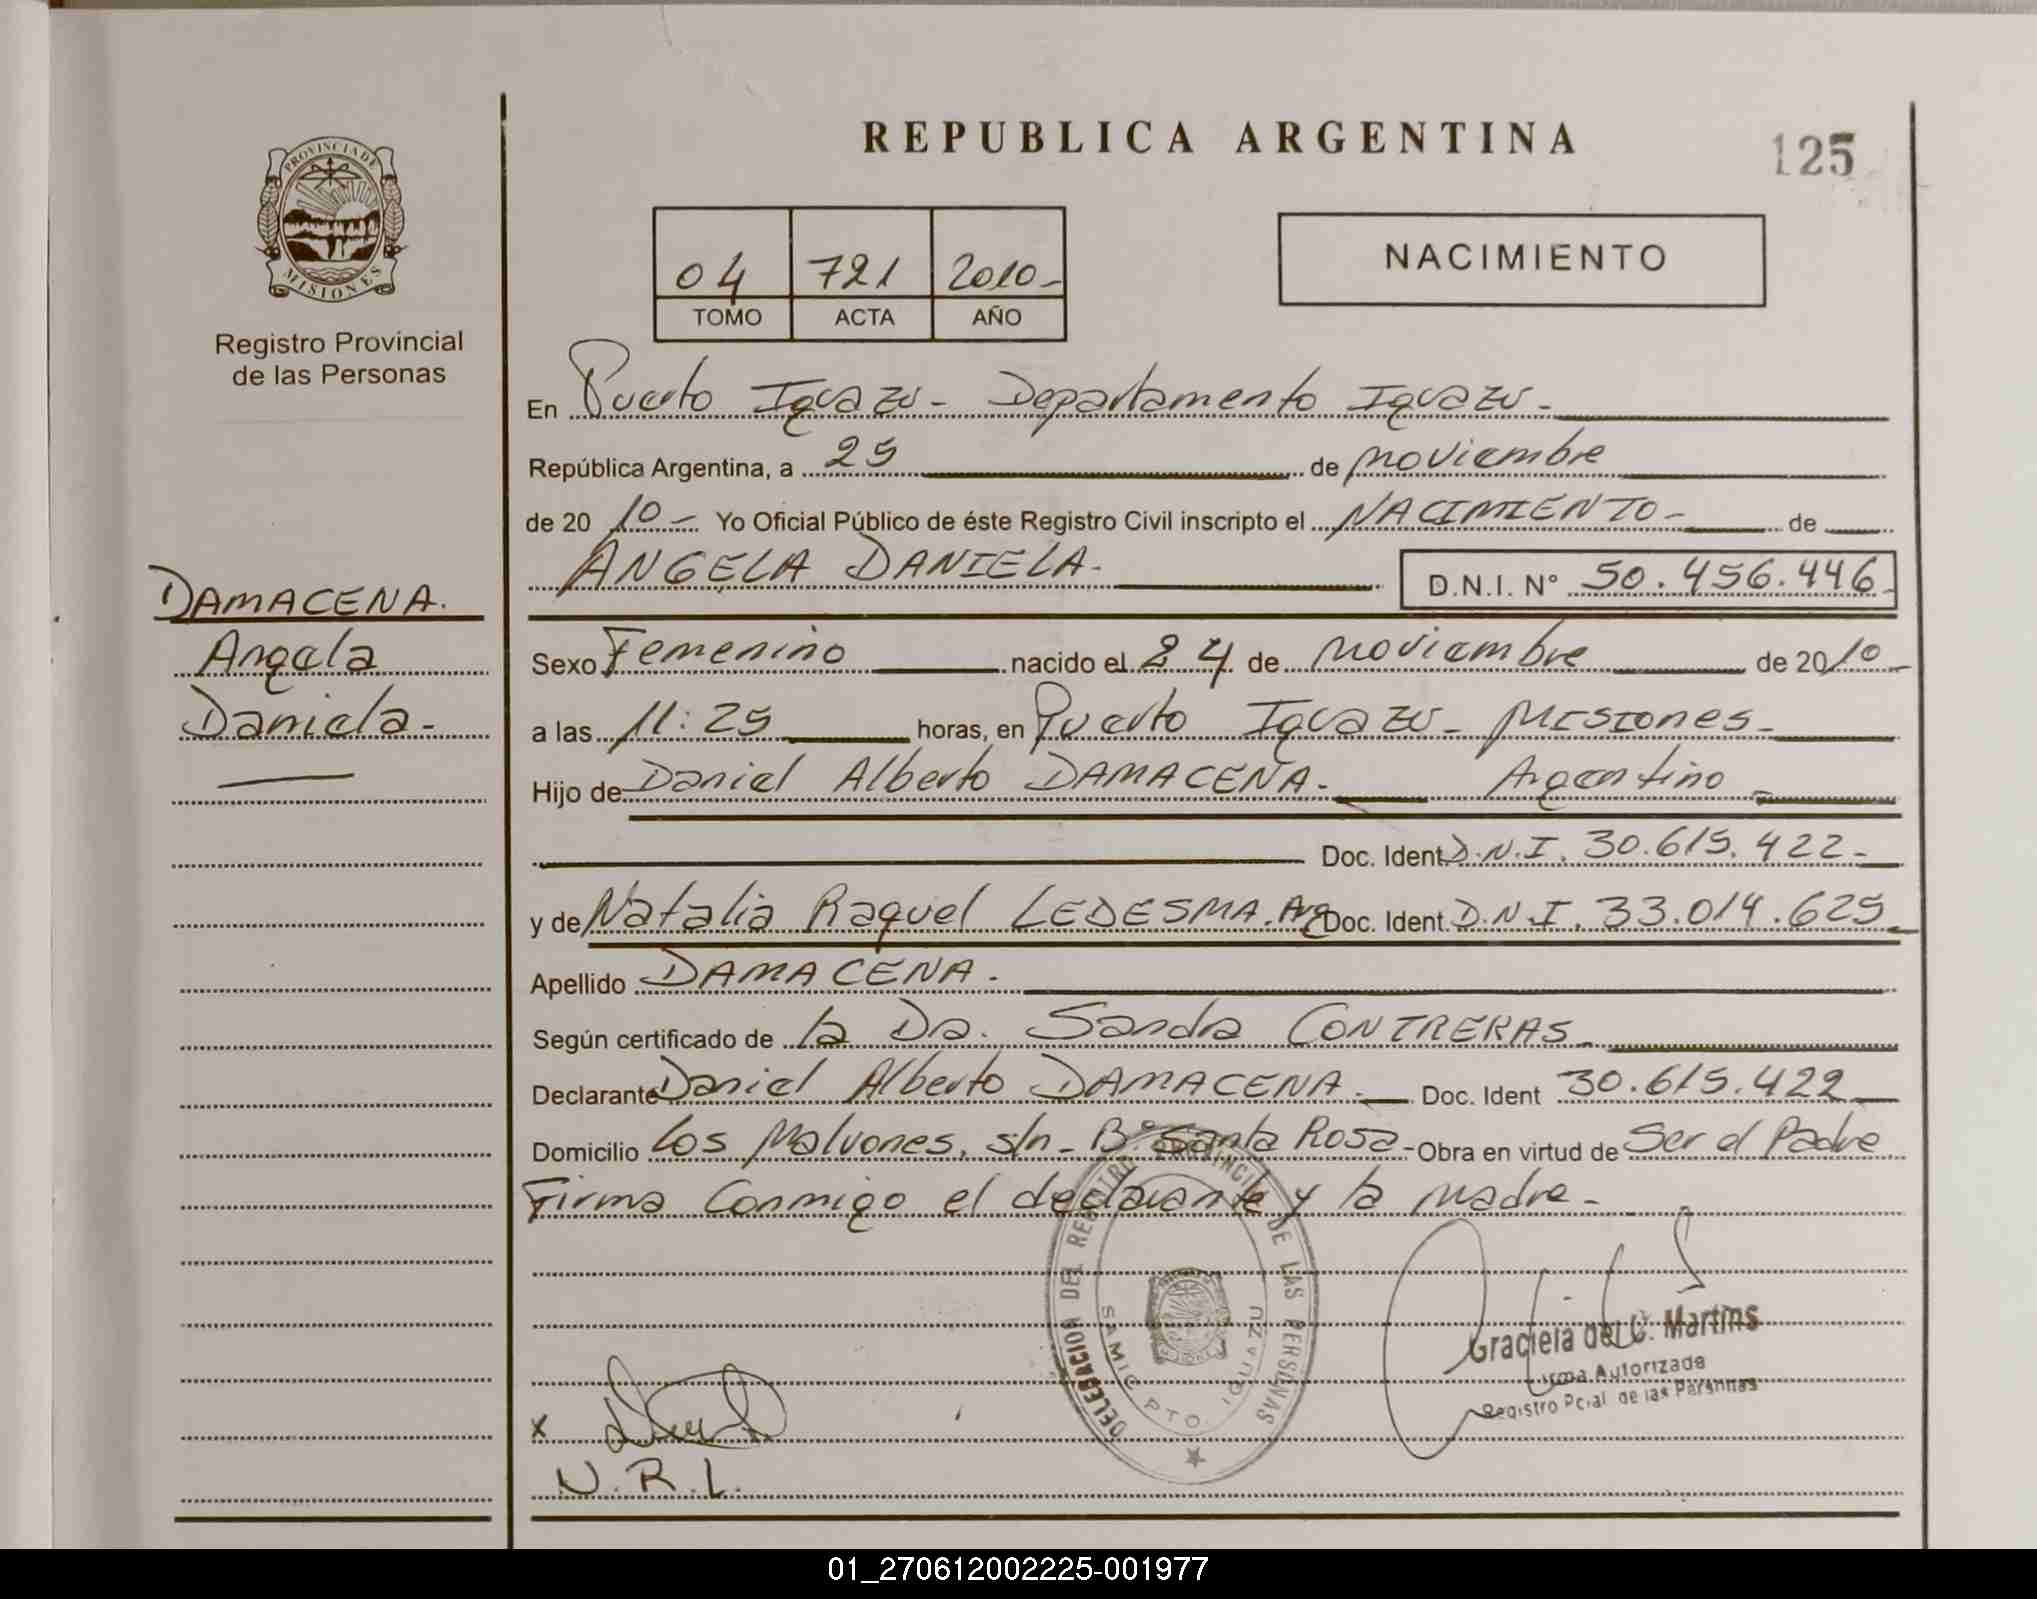 REPUBLICA ARGENTINA
125
PROVINCIA DE
MISIONES
Registro Provincial
de las Personas
04 721 2010-
TOMO ACTA AÑO
NACIMIENTO
En Puerto Iguazu - Departamento Iguazu -
República Argentina, a 25 de noviembre
de 20 10- Yo Oficial Público de éste Registro Civil inscripto el NACIMIENTO- de
ANGELA DANIELA.
D.N.I. N° 50.456.446
DAMACENA.
Angela
Daniela-
Sexo Femenino nacido el 24 de noviembre de 2010-
a las 11:25 horas, en Puerto Iguazu - Misiones-
Hijo de Daniel Alberto DAMACENA. Argentino
Doc. Ident D.N.I. 30.615.422-
y de Natalia Raquel LEDESMA. Arg Doc. Ident. D.N.I. 33.014.625
Apellido DAMACENA.
Según certificado de la Dra. Sandra CONTRERAS
Declarante Daniel Alberto DAMACENA. Doc. Ident 30.615.422
Domicilio Los Malvones, s/n- B° Santa Rosa- Obra en virtud de Ser el Padre
Firma Conmigo el declarante y la madre-
DELEGACION DEL REGISTRO PROVINCIAL DE LAS PERSONAS
SAMIC PTO. IGUAZU
Graciela del C. Martins
Firma Autorizada
Registro Pcial de las Personas
x
N.R.L.
01_270612002225-001977